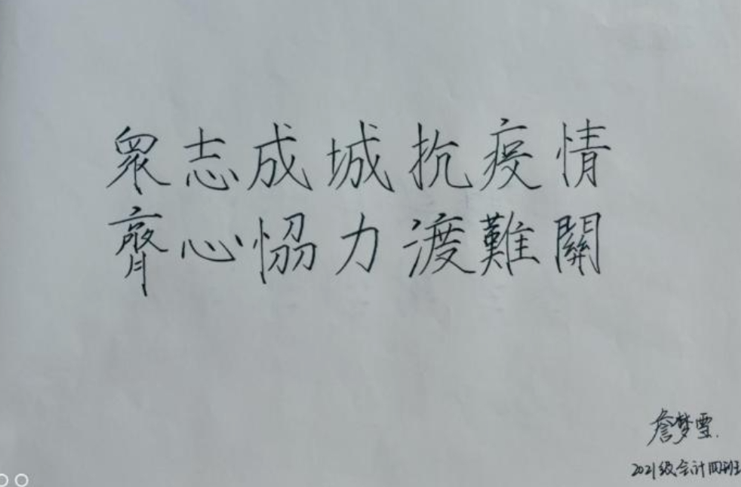 眾志成城抗疫情
齊心恊力渡難關
詹梦雪
2021级会计四班